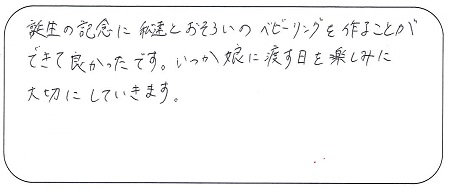 誕生の記念に私達とおそろいのベビーリングを作ることが
できて良かったです。いつか娘に渡す日を楽しみに
大切にしていきます。